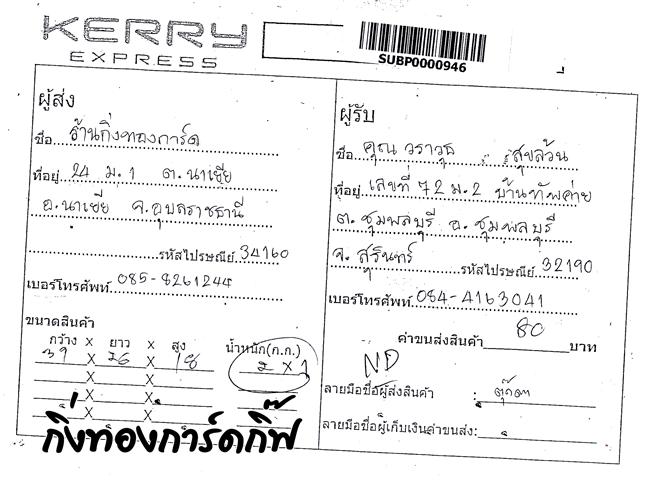 KERRY
EXPRESS
SUBP0000946
ผู้ส่ง
ชื่อ ร้านกิ่งทองการ์ด
ที่อยู่ 24 ม.1 ต.นาเยีย
อ.นาเยีย จ.อุบลราชธานี
รหัสไปรษณีย์ 34160
เบอร์โทรศัพท์ 085-8261244
ขนาดสินค้า
กว้าง x ยาว x สูง น้ำหนัก(ก.ก.)
39 X 26 X 18 2 x 1
X X
X X
X X
กิ่งทองการ์ดกิ๊ฟ
ผู้รับ
ชื่อ คุณ วราวุธ สุขล้วน
ที่อยู่ เลขที่ 72 ม.2 บ้านทัพค่าย
ต. ชุมพลบุรี อ. ชุมพลบุรี
จ. สุรินทร์ รหัสไปรษณีย์ 32190
เบอร์โทรศัพท์ 084-4163041
ค่าขนส่งสินค้า 80 บาท
ND
ลายมือชื่อผู้ส่งสินค้า : ตุ๊กตา
ลายมือชื่อผู้เก็บเงินค่าขนส่ง: